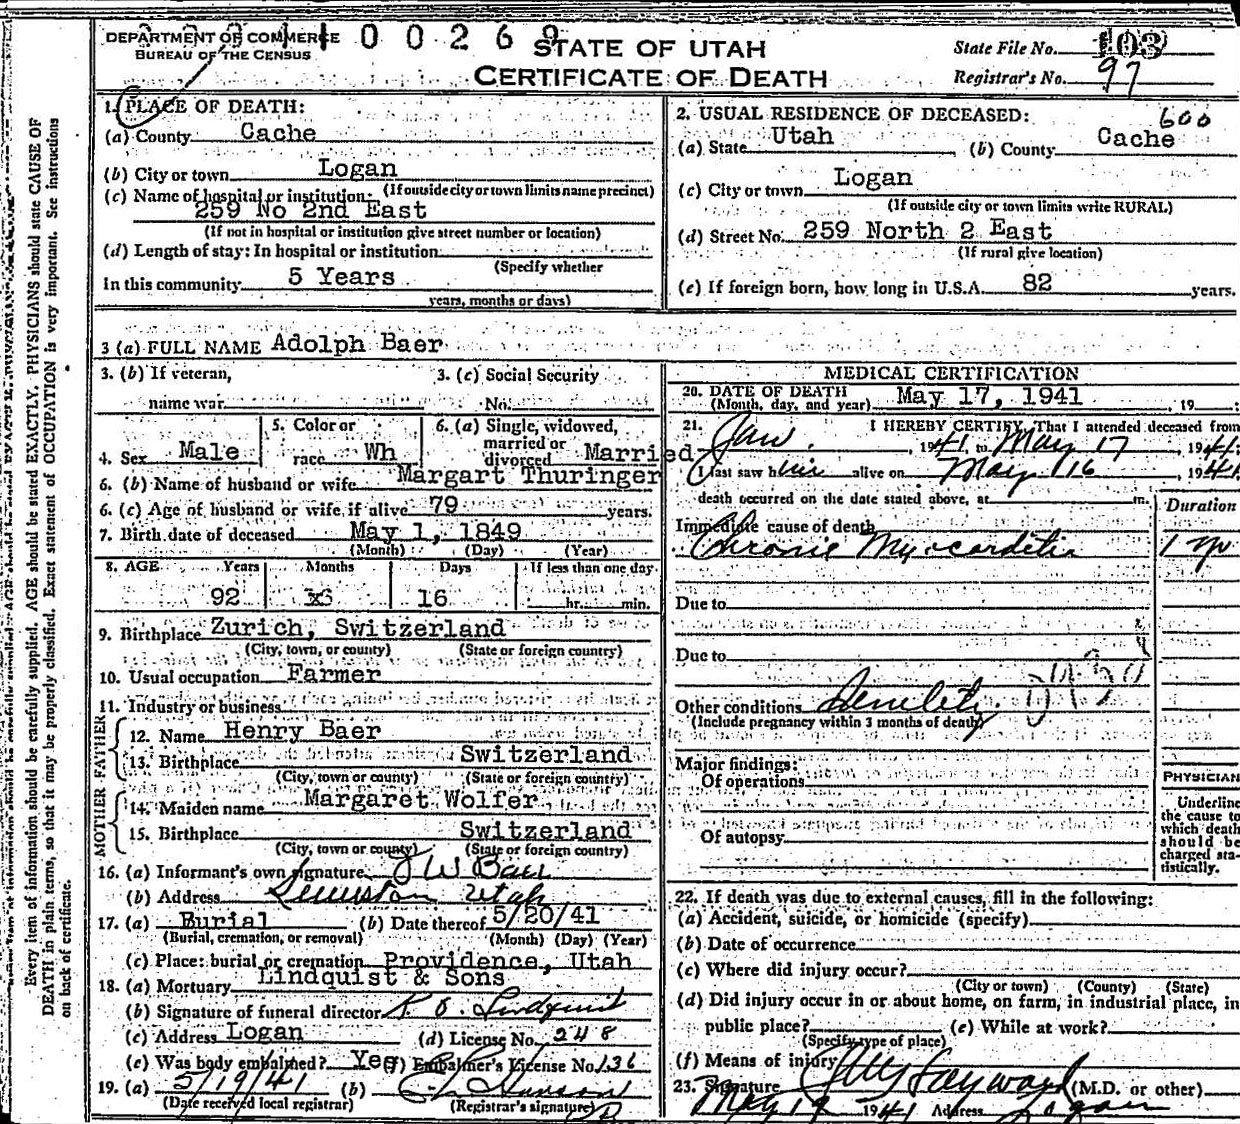 DEPARTMENT OF COMMERCE
BUREAU OF THE CENSUS
0 0 2 6 9
STATE OF UTAH
CERTIFICATE OF DEATH
State File No. 103
Registrar's No. 97
1. PLACE OF DEATH:
(a) County Cache
(b) City or town Logan
(If outside city or town limits name precinct)
(c) Name of hospital or institution:
259 No 2nd East
(If not in hospital or institution give street number or location)
(d) Length of stay: In hospital or institution
(Specify whether
In this community 5 Years
years, months or days)
2. USUAL RESIDENCE OF DECEASED: 600
(a) State Utah (b) County Cache
(c) City or town Logan
(If outside city or town limits write RURAL)
(d) Street No. 259 North 2 East
(If rural give location)
(e) If foreign born, how long in U.S.A. 82 years.
3 (a) FULL NAME Adolph Baer
3. (b) If veteran, 3. (c) Social Security
name war No.
4. Sex Male 5. Color or race Wh 6. (a) Single, widowed, married or divorced Married
6. (b) Name of husband or wife Margart Thuringer
6. (c) Age of husband or wife if alive 79 years.
7. Birth date of deceased May 1, 1849
(Month) (Day) (Year)
8. AGE Years Months Days If less than one day
92 16 hr. min.
9. Birthplace Zurich, Switzerland
(City, town, or county) (State or foreign country)
10. Usual occupation Farmer
11. Industry or business
FATHER
12. Name Henry Baer
13. Birthplace Switzerland
(City, town or county) (State or foreign country)
MOTHER
14. Maiden name Margaret Wolfer
15. Birthplace Switzerland
(City, town or county) (State or foreign country)
16. (a) Informant's own signature J W Baer
(b) Address Lewiston Utah
17. (a) Burial (b) Date thereof 5/20/41
(Burial, cremation, or removal) (Month) (Day) (Year)
(c) Place: burial or cremation Providence, Utah
18. (a) Mortuary Lindquist & Sons
(b) Signature of funeral director Lindquist
(c) Address Logan (d) License No. 248
(e) Was body embalmed? Yes (f) Embalmer's License No. 136
19. (a) 5/19/41 (b)
(Date received local registrar) (Registrar's signature)
MEDICAL CERTIFICATION
20. DATE OF DEATH May 17, 1941, 19
(Month, day, and year)
21. I HEREBY CERTIFY, That I attended deceased from
Jan. , 1941 to May 17, 1941.
I last saw him alive on May 16, 1941,
death occurred on the date stated above, at m.
Duration
Immediate cause of death
Chronic Myocarditis 1 yr
Due to
Due to
Other conditions Senility.
(Include pregnancy within 3 months of death)
Major findings:
Of operations
Of autopsy
PHYSICIAN
Underline
the cause to
which death
should be
charged sta-
tistically.
22. If death was due to external causes, fill in the following:
(a) Accident, suicide, or homicide (specify)
(b) Date of occurrence
(c) Where did injury occur?
(City or town) (County) (State)
(d) Did injury occur in or about home, on farm, in industrial place, in
public place? (e) While at work?
(Specify type of place)
(f) Means of injury
23. Signature Hayward (M.D. or other)
May 19 1941 Address Logan
Every item of information should be carefully supplied. AGE should be stated EXACTLY. PHYSICIANS should state CAUSE OF
DEATH in plain terms, so that it may be properly classified. Exact statement of OCCUPATION is very important. See instructions
on back of certificate.